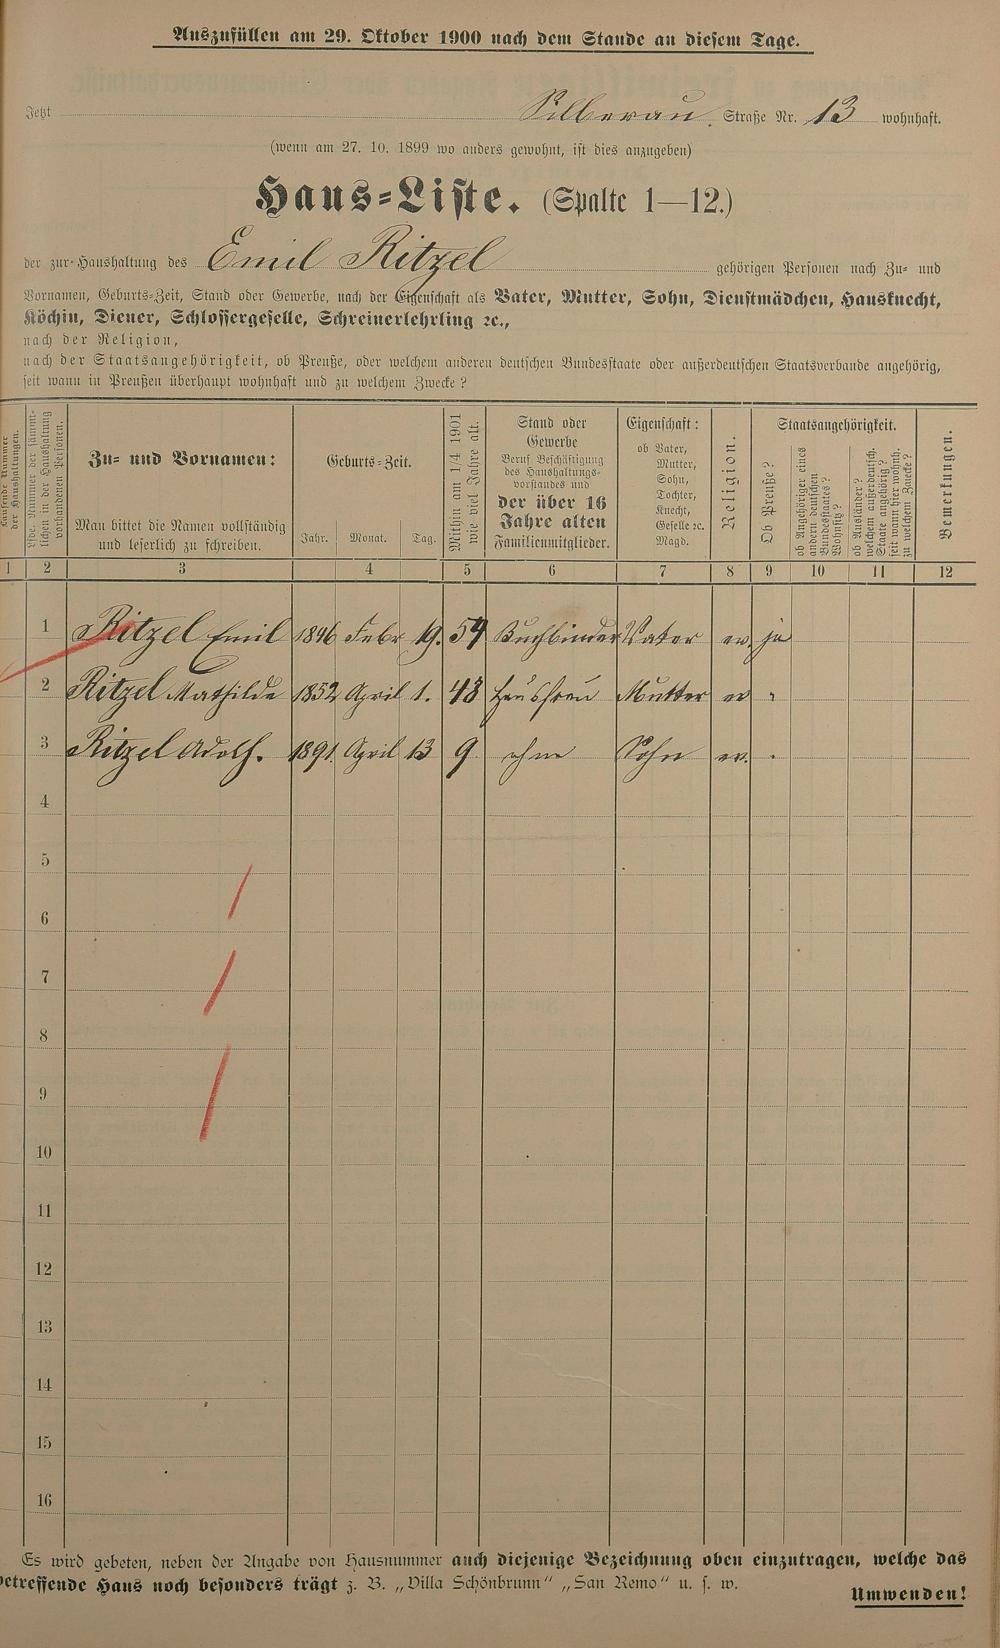 Auszufüllen am 29. Oktober 1900 nach dem Stande an diesem Tage.
Jetzt Silberau Straße Nr. 13 wohnhaft.
(wenn am 27. 10. 1899 wo anders gewohnt, ist dies anzugeben)
Haus-Liste. (Spalte 1—12.)
der zur Haushaltung des Emil Ritzel gehörigen Personen nach Zu- und
Vornamen, Geburts-Zeit, Stand oder Gewerbe, nach der Eigenschaft als Vater, Mutter, Sohn, Dienstmädchen, Hausknecht,
Köchin, Diener, Schlossergeselle, Schreinerlehrling ꝛc.,
nach der Religion,
nach der Staatsangehörigkeit, ob Preuße, oder welchem anderen deutschen Bundesstaate oder außerdeutschen Staatsverbande angehörig,
seit wann in Preußen überhaupt wohnhaft und zu welchem Zwecke?
Laufende Nummer
der Haushaltungen.
Lfde. Nummer der sämmt-
lichen in der Haushaltung
vorhandenen Personen.
Zu- und Vornamen:
Man bittet die Namen vollständig
und leserlich zu schreiben.
Geburts-Zeit.
Jahr. Monat. Tag.
Mithin am 1/4 1901
wie viel Jahre alt.
Stand oder
Gewerbe
Beruf Beschäftigung
des Haushaltungs-
vorstandes und
der über 16
Jahre alten
Familienmitglieder.
Eigenschaft:
ob Vater,
Mutter,
Sohn,
Tochter,
Knecht,
Geselle ꝛc.
Magd.
Religion.
Staatsangehörigkeit.
Ob Preuße?
ob Angehöriger eines
anderen deutschen
Bundesstaates?
Wohnsitz?
ob Ausländer?
welchem außerdeutsch.
Staate angehörig?
seit wann hier wohnh.
zu welchem Zwecke?
Bemerkungen.
1 2 3 4 5 6 7 8 9 10 11 12
1 Ritzel Emil 1846 Febr 19. 54 Buchbinder Vater ev. ja
2 Ritzel Mathilde 1852 April 1. 48 Hausfrau Mutter ev "
3 Ritzel Adolf. 1891. April 13 9 ohne Sohn ev. "
4
5
6
7
8
9
10
11
12
13
14
15
16
Es wird gebeten, neben der Angabe von Hausnummer auch diejenige Bezeichnung oben einzutragen, welche das
betreffende Haus noch besonders trägt z. B. „Villa Schönbrunn“ „San Remo“ u. s. w.
Umwenden!